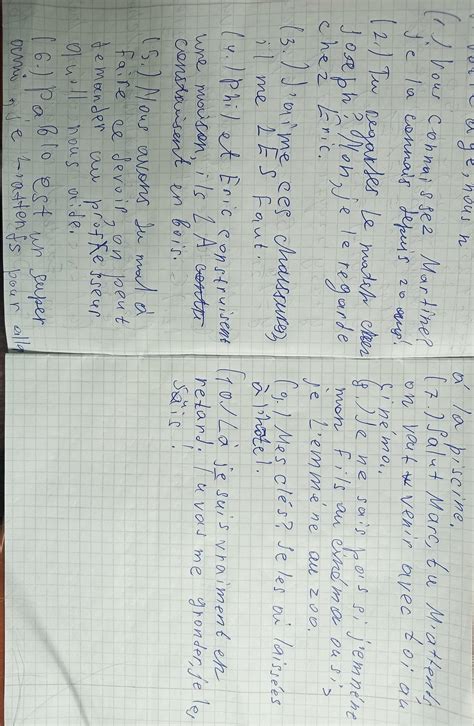 (1.) Vous connaissez Martine?
je la connais depuis 20 ans!
(2.) Tu regardes le match chez
Joseph? Non, je le regarde
chez Eric.
(3.) J'aime ces chaussures,
il me LES faut.
(4.) Phil et Eric construisent
une maison, ils LA
construisent en bois.
(5.) Nous avons du mal à
faire ce devoir, on peut
demander au professeur
qu'il nous aide.
(6.) Pablo est un super
ami, je L'attends pour all
a la piscine.
(7.) Salut Marc, tu M'attends
on vait venir avec toi au
Cinéma.
8.) Je ne sais pas si j'emméne
mon fils au cinéma ou si
je L'emméne au zoo.
(9.) Mes clés? Je les ai laissées
à l'hôtel.
(10.) Là je suis vraiment en
retard. Tu vas me gronder, je le
sais!